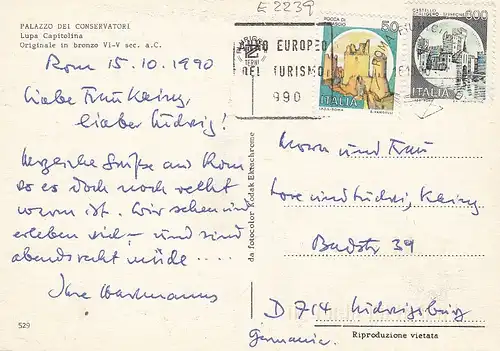 E 2239
PALAZZO DEI CONSERVATORI
Lupa Capitolina
Originale in bronzo VI-V sec. a.C.
Rom 15.10.1990
Liebe Frau Kainz,
lieber Ludwig!
Herzliche Grüße aus Rom
wo es doch noch recht
warm ist. Wir sehen und
erleben viel - und sind
abends recht müde....
Ihre
529
da fotocolor Kodak Ektachrome
ANNO EUROPEO
DEL TURISMO
1990
TERNI
ROCCA DI
50
ITALIA
CASTELLO
600
ITALIA
Herrn und Frau
und Ludwig
39
D 714 Ludwigsburg
Germania.
Riproduzione vietata